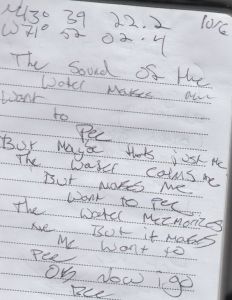 N43° 39 22.2 10/6
W71° 52 02.4
The Sound of the
Water Makes me
Want
to
Pee
But Maybe thats just me
The Water calms me
But makes me
want to pee
The Water Mezmorizes
me But it makes
Me want to
Pee
Oh Now i go
Pee